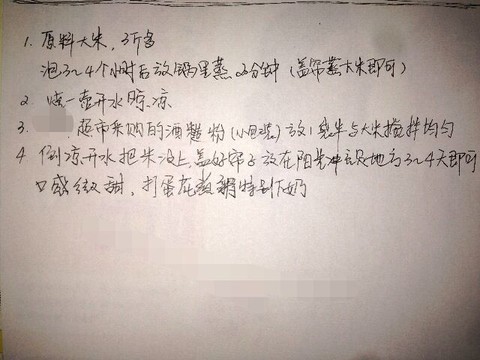 1. 原料大米, 3斤多
泡3~4个小时后放锅里蒸20分钟(盖帘蒸大米即可)
2 烧一壶开水晾凉
3. 超市采购的酒糙粉(小包装)放1袋半与大米搅拌均匀
4 倒凉开水把米没上,盖好帘子放在阳光冲足地方3~4天即可
口感微甜,打蛋花煮粥特别下奶